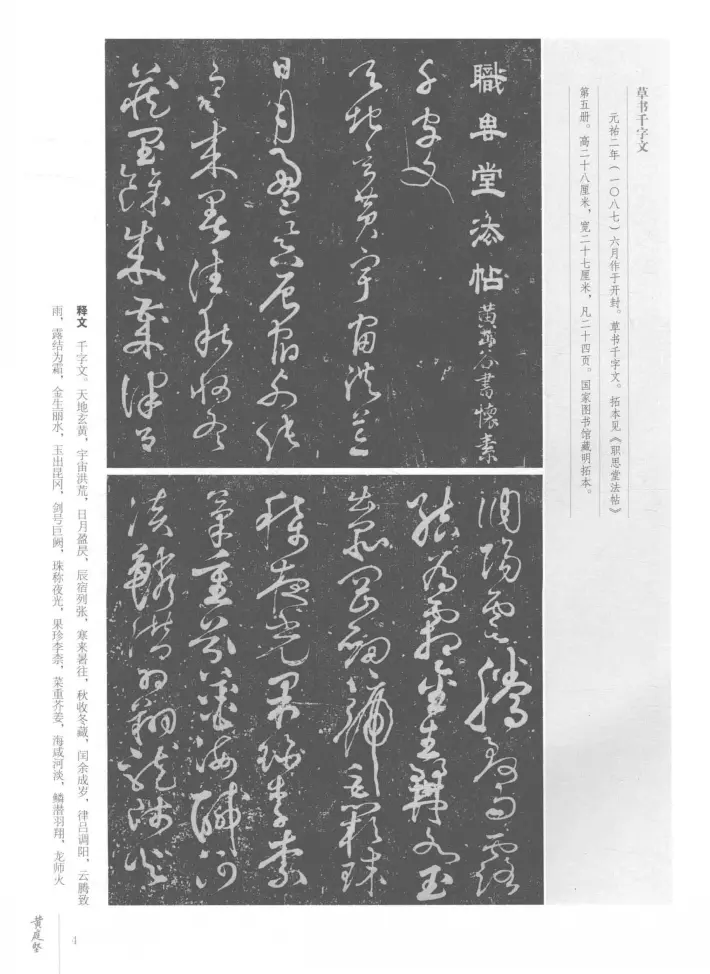 草书千字文
元祐二年（一〇八七）六月作于开封。草书千字文。拓本见《职思堂法帖》
第五册。高二十八厘米，宽二十七厘米，凡二十四页。国家图书馆藏明拓本。
職思堂法帖 黄山谷書懷素
千字文
天地玄黄宇宙洪荒
日月盈昃辰宿列张
寒来暑往秋收冬
藏闰余成岁律吕
调阳云腾致雨露
结为霜金生丽水玉
出昆冈剑号巨阙珠
称夜光果珍李柰
菜重芥姜海咸河
淡鳞潜羽翔龙师火
释文 千字文。天地玄黄，宇宙洪荒，日月盈昃，辰宿列张，寒来暑往，秋收冬藏，闰余成岁，律吕调阳，云腾致
雨，露结为霜，金生丽水，玉出昆冈，剑号巨阙，珠称夜光，果珍李柰，菜重芥姜，海咸河淡，鳞潜羽翔，龙师火
黄庭坚
4